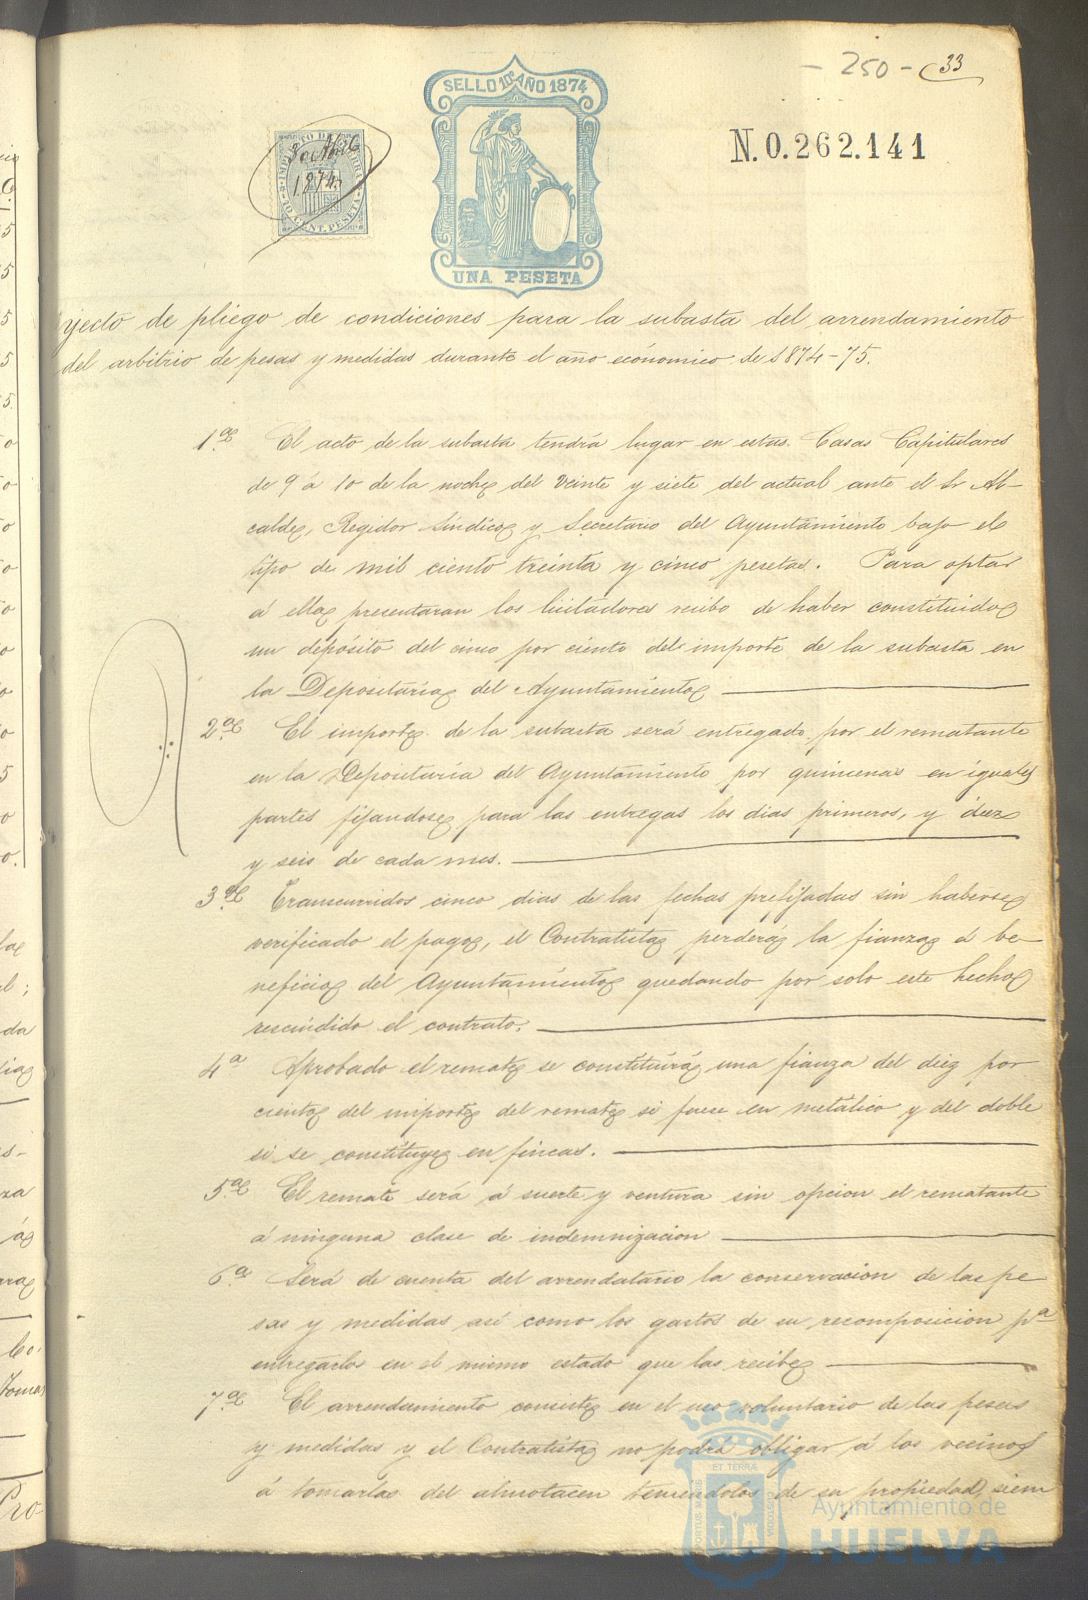 - 250 - 33
SELLO 10º AÑO 1874
30 Abril
1874
IMPTO DE GUERRA
10 CENT. PESETA
N. 0.262.141
UNA PESETA
yecto de pliego de condiciones para la subasta del arrendamiento
del arbitrio de pesas y medidas durante el año ecónomico de 1874-75.
1ª El acto de la subasta tendrá lugar en estas Casas Capitulares
de 9 á 10 de la noche del veinte y siete del actual ante el Sr Al-
calde, Regidor Sindico y Secretario del Ayuntamiento bajo el
tipo de mil ciento treinta y cinco pesetas. Para optar
á ella presentaran los licitadores recibo de haber constituido
un depósito del cinco por ciento del importe de la subasta en
la Depositaria del Ayuntamiento
2ª El importe de la subasta será entregado por el rematante
en la Depositaria del Ayuntamiento por quincenas en iguales
partes fijandose para las entregas los dias primeros, y diez
y seis de cada mes.
3ª Transcurridos cinco dias de las fechas prefijadas sin haberse
verificado el pago, el Contratista perderá la fianza á be-
neficio del Ayuntamiento quedando por solo este hecho
rescindido el contrato.
4ª Aprobado el remate se constituirá una fianza del diez por
ciento del importe del remate si fuese en metálico y del doble
si se constituye en fincas.
5ª El remate será á suerte y ventura sin opcion el rematante
á ninguna clase de indemnizacion
6ª Será de cuenta del arrendatario la conservacion de las pe
sas y medidas asi como los gastos de su recomposicion pª
entregarlos en el mismo estado que las recibe
7ª El arrendamiento consiste en el uso voluntario de las pesas
y medidas y el Contratista no podrá obligar á los vecinos
á tomarlas del almotacen teniendolas de su propiedad, siem
Ayuntamiento de
HUELVA